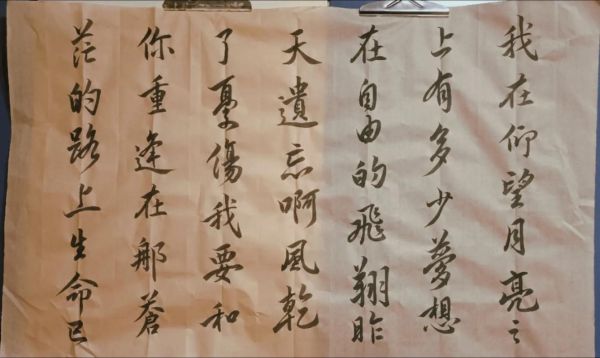 我在仰望月亮之
上有多少夢想
在自由的飛翔昨
天遺忘啊風乾
了憂傷我要和
你重逢在那蒼
茫的路上生命已